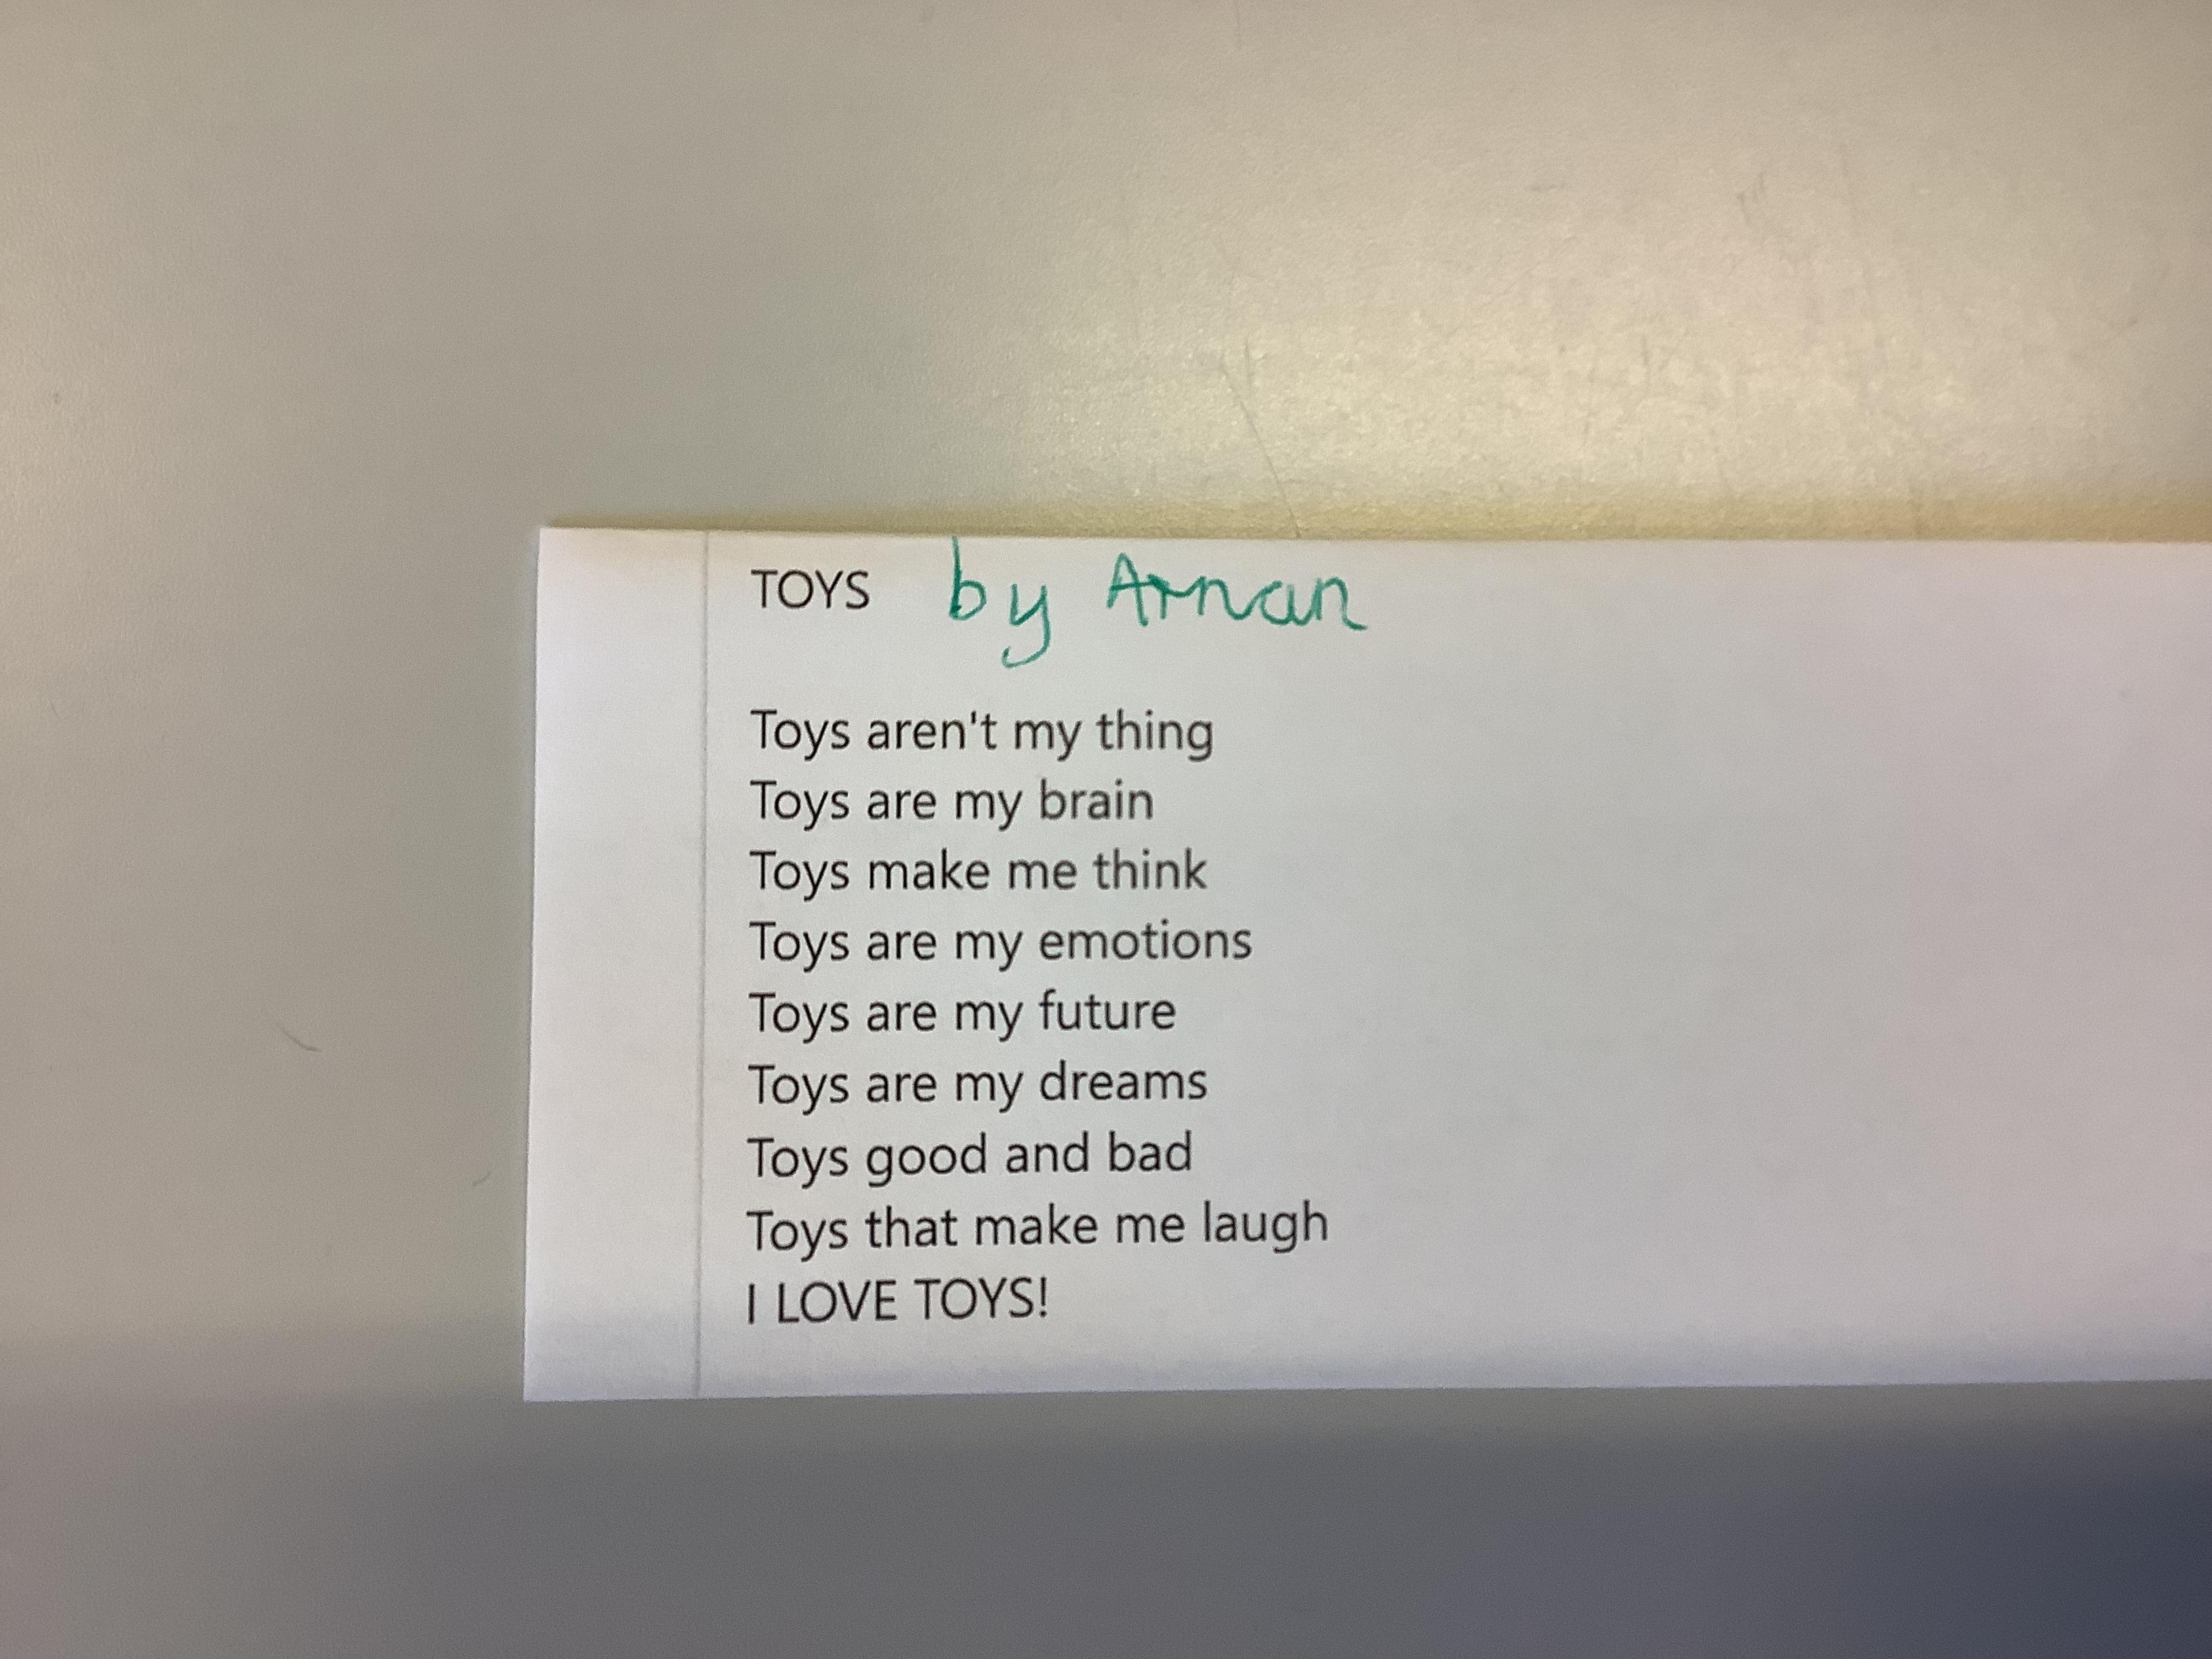 TOYS by Arnan
Toys aren't my thing
Toys are my brain
Toys make me think
Toys are my emotions
Toys are my future
Toys are my dreams
Toys good and bad
Toys that make me laugh
I LOVE TOYS!